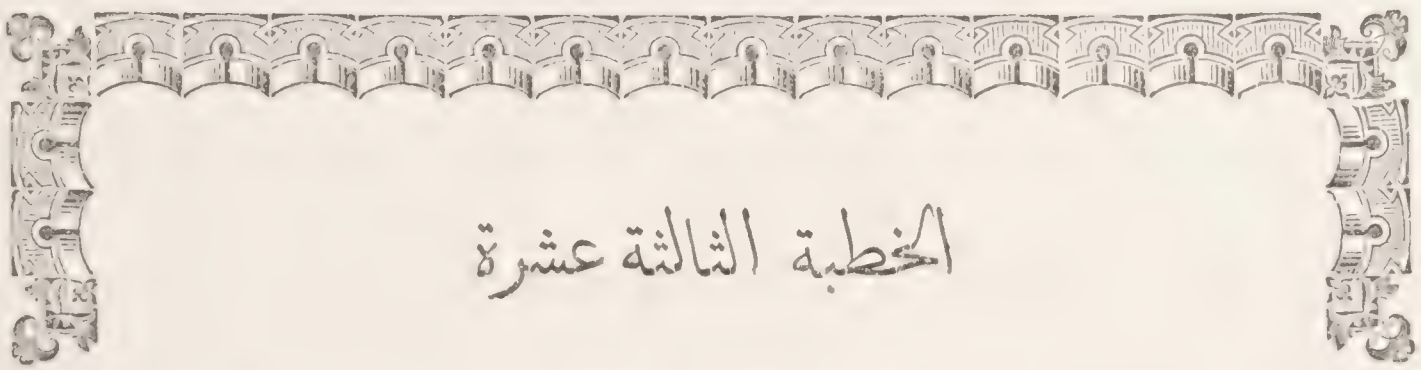 الخطبة الثالثة عشرة